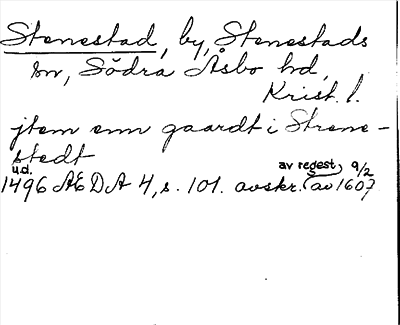 Stenestad, by, Stenestads
sn, Södra Åsbo hd,
Krist. l.
jtem enn gaardt i Strene-
stedt
u.d. av regest, 9/2
1496 AEDA 4, s. 101. avskr. (av 1607